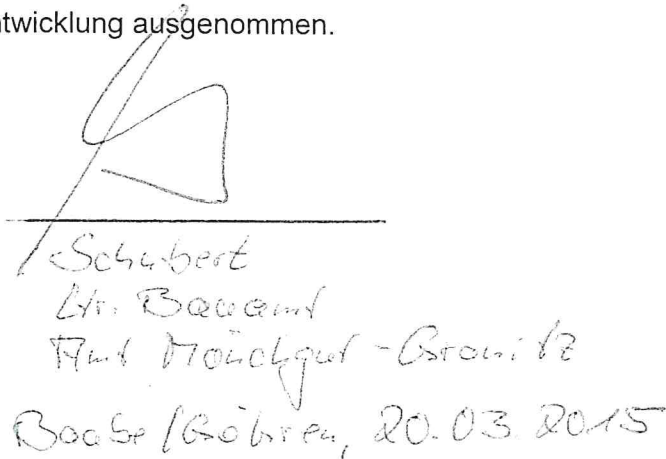 ntwicklung ausgenommen.
Schubert
Ltr. Bauamt
Amt Mönchgut-Granitz
Baabe/Göhren, 20.03.2015